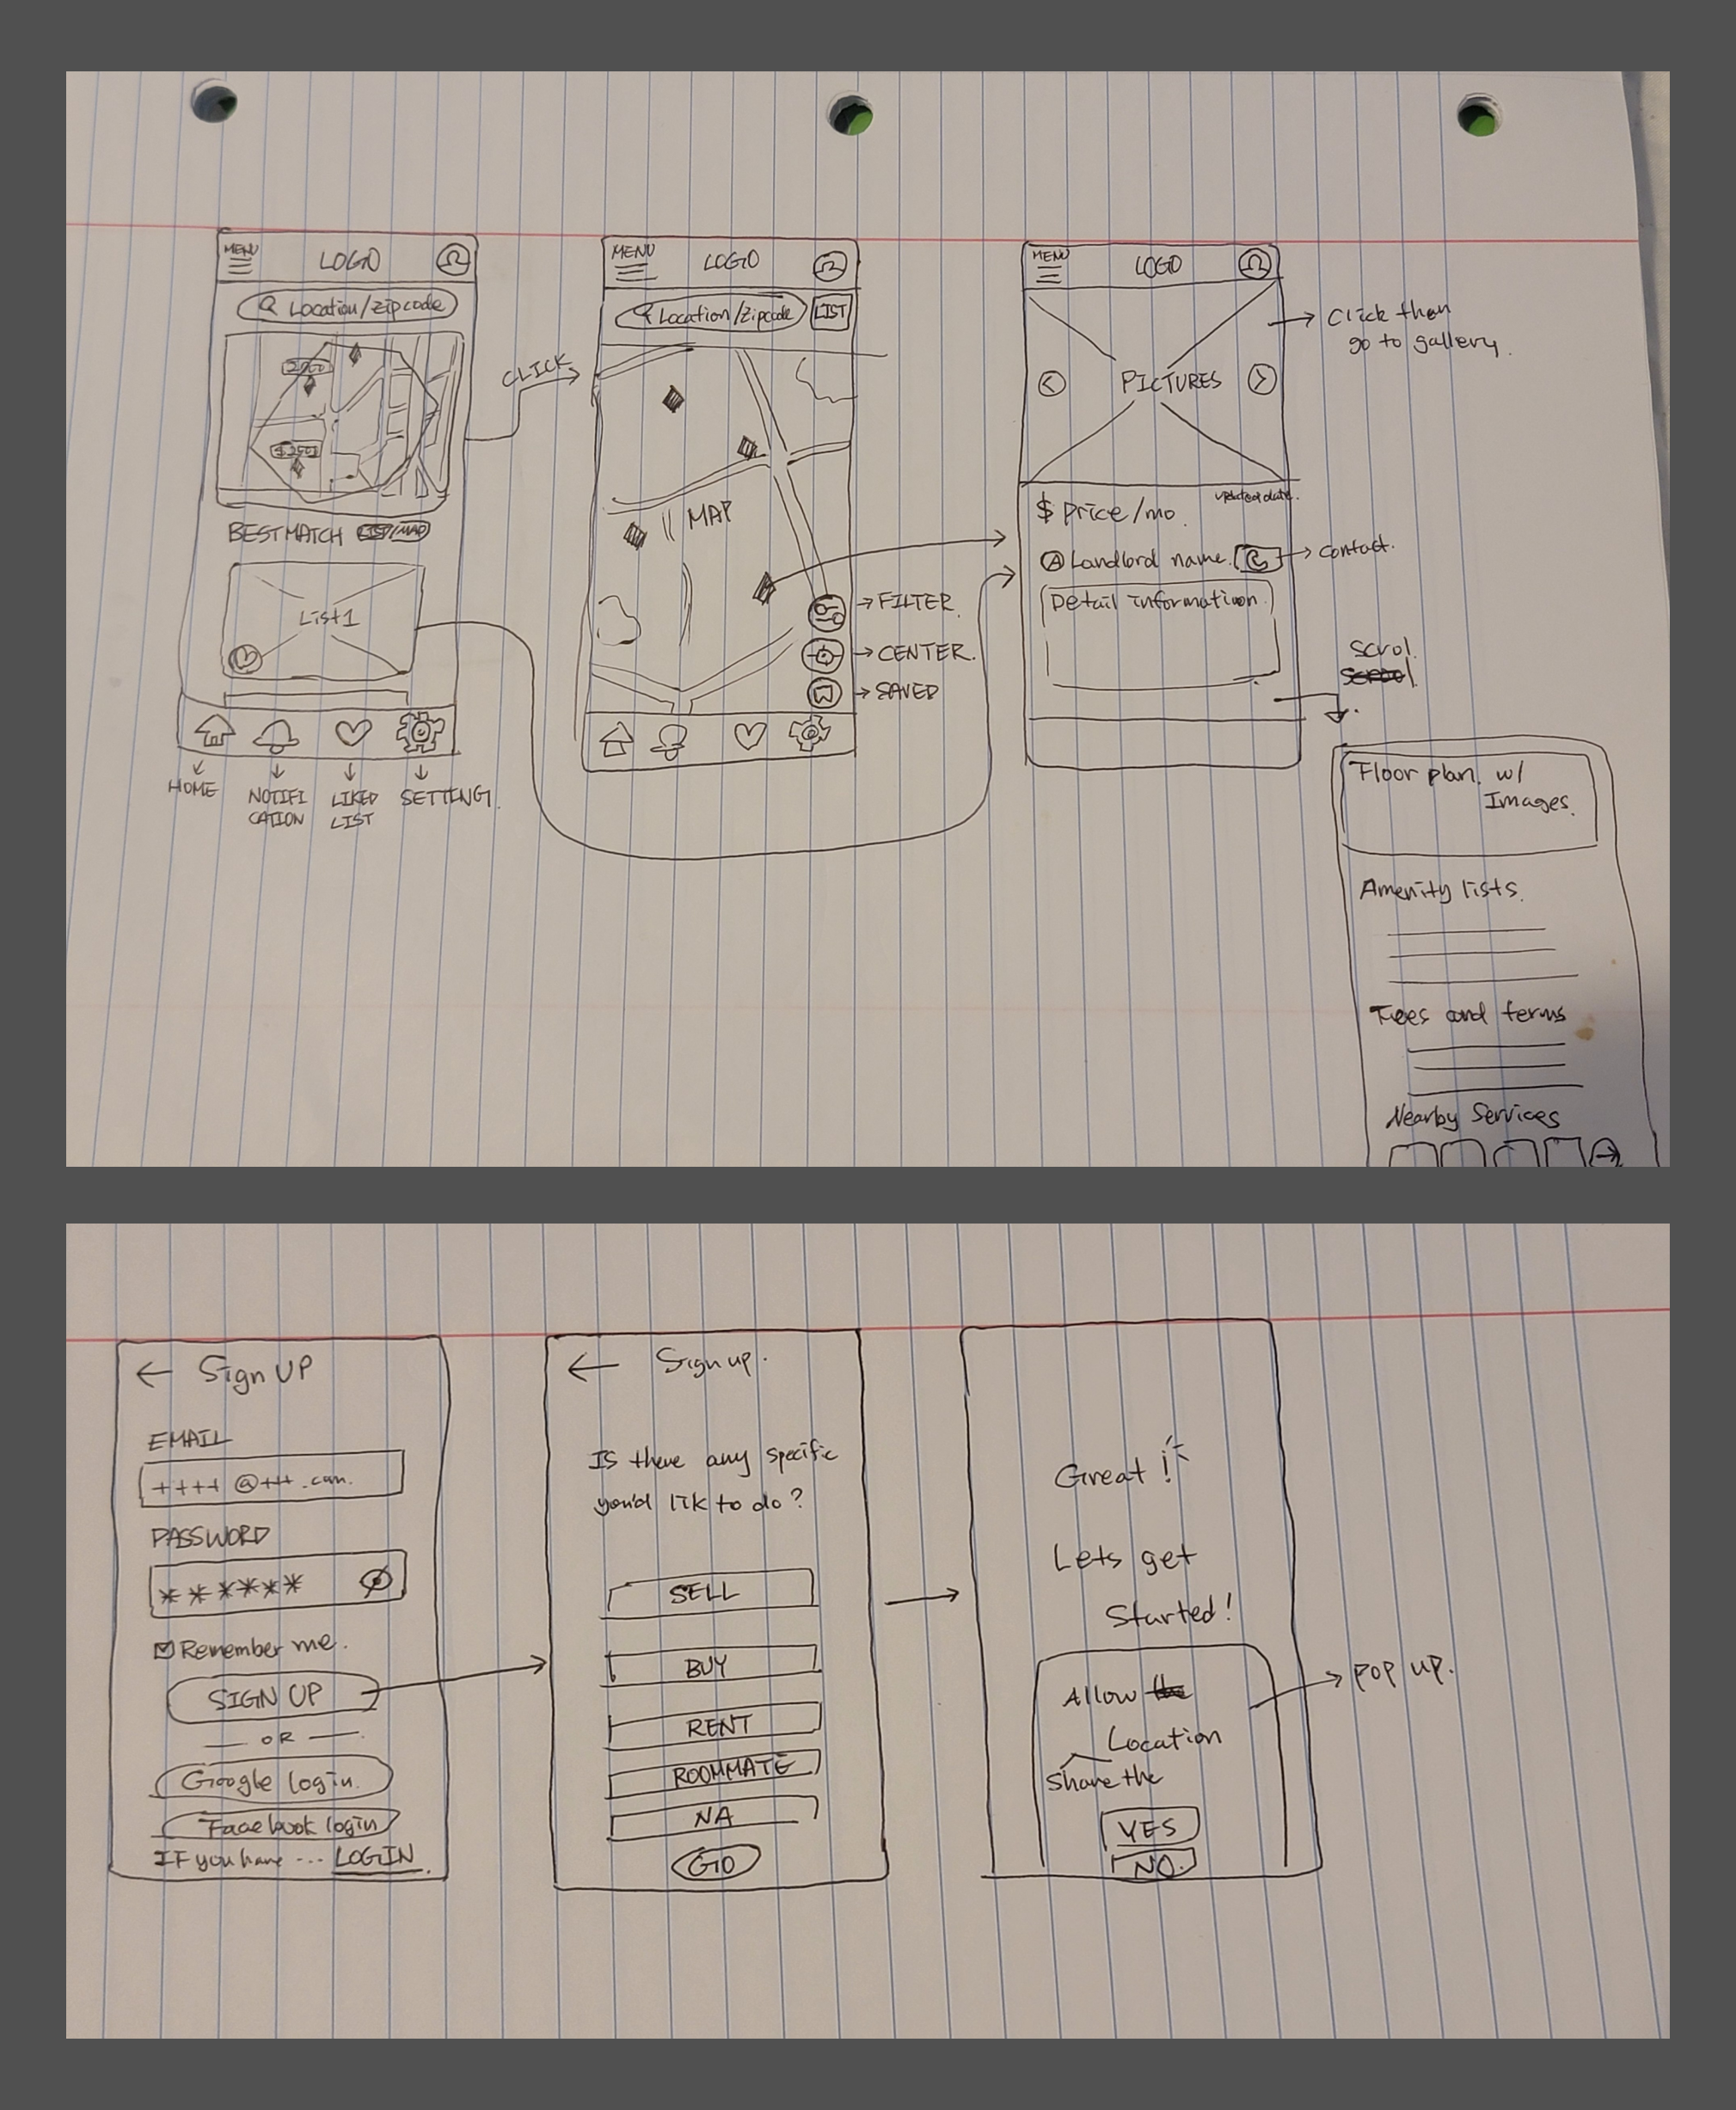 MENU
LOGO
Location/zipcode
BEST MATCH LIST/MAP
List1
HOME
NOTIFI
CATION
LIKED
LIST
SETTING.
CLICK
MENU
LOGO
Location/Zipcode
LIST
MAP
FILTER.
CENTER.
SAVED
MENU
LOGO
PICTURES
Click then
go to gallery.
$ price/mo.
A Landlord name.
contact.
Detail information.
scrol.
Floor plan. w/
Images.
Amenity lists.
Fees and terms
Nearby Services
Sign UP
EMAIL
++++ @+++ .com.
PASSWORD
******
Remember me.
SIGN UP
OR
Google login.
Facebook login
IF you have --- LOGIN.
Sign up.
IS there any specific
you'd lik to do?
SELL
BUY
RENT
ROOMMATE
NA
GO
Great!
Lets get
Started!
Allow
Location
Share the
YES
NO.
POP UP.